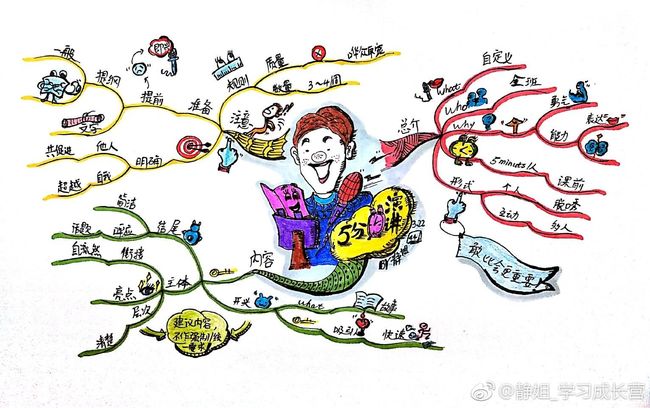 一般
提纲
文字
提前
即兴
准备
共促进
他人
明确
超越
自我
规则
质量
哗众取宠
数量
3~4個
注意
总介
what
自定义
who
全班
why
勇气
能力
表达
5minuts/人
课前
形式
个人
脱口秀
主动
幼人
敢比会更重要
5分
演讲
3.22
静姐
内容
简洁
结尾
话题
呼应
自然
衔接
主体
亮点
层次
清楚
开头
what
故事
吸引
快速
建议内容,
不作强制统
一要求!
@静姐_学习成长营